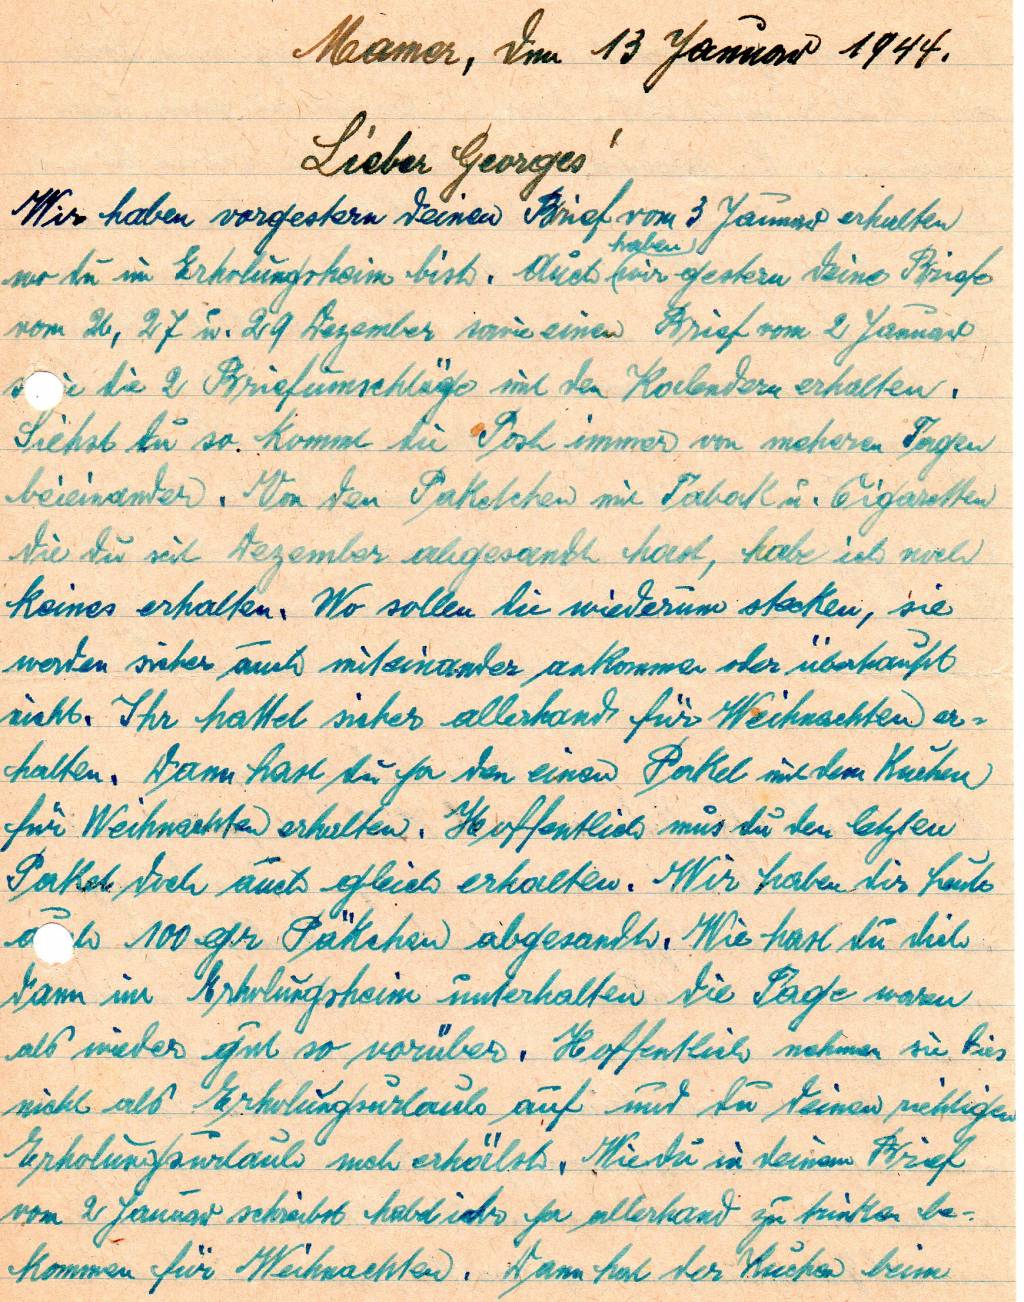 Mamer, den 13 Januar 1944.
Lieber Georges!
Wir haben vorgestern deinen Brief vom 3 Januar erhalten
wo du im Erholungsheim bist. Auch haben wir gestern deine Briefe
vom 26, 27 u. 29 Dezember sowie einen Brief vom 2 Januar
die 2 Briefumschläge mit den Kalendern erhalten.
Siehst du so kommt die Post immer von meheren Tagen
beieinander. Von den Paketchen mit Tabak u. Cigaretten
die du seit Dezember abgesandt hast, habe ich noch
keines erhalten. Wo sollen die wiederum stecken, sie
werden sicher auch miteinander ankommen oder überhaupt
nicht. Ihr hattet sicher allerhand für Weihnachten er-
halten. Dann hast du ja den einen Paket mit dem Kuchen
für Weihnachten erhalten. Hoffentlich mus du den letzten
Paket doch auch gleich erhalten. Wir haben dir heute
auch 100 gr Päkchen abgesandt. Wie hast du dich
dann im Erholungsheim unterhalten die Tage waren
als wieder gut so vorüber. Hoffentlich nehmen sie dies
nicht als Erholungsurlaub auf und du deinen richtigen
Erholungsurlaub noch erhälst. Wie du in deinem Brief
vom 2 Januar schreibst habt ihr ja allerhand zu trinken be-
kommen für Weihnachten. Dann hat der Kuchen beim